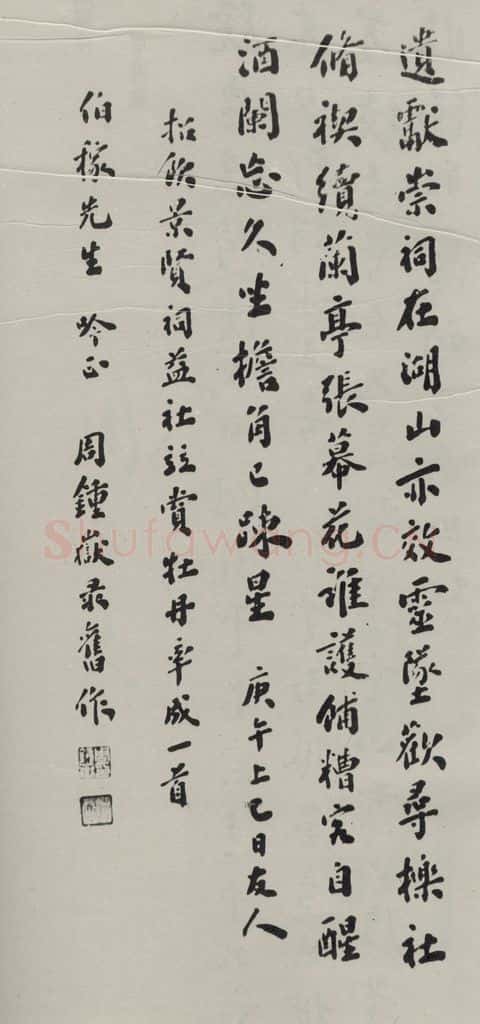 遺獻崇祠在湖山亦效靈墜歡尋櫟社
脩禊續蘭亭張幕花誰護餔糟究自醒
酒闌忘久坐檐角已疎星 庚午上巳日友人
招飲景賢祠益社賞牡丹率成一首
伯稼先生 吟正 周鍾嶽录舊作
Shufawang.cn